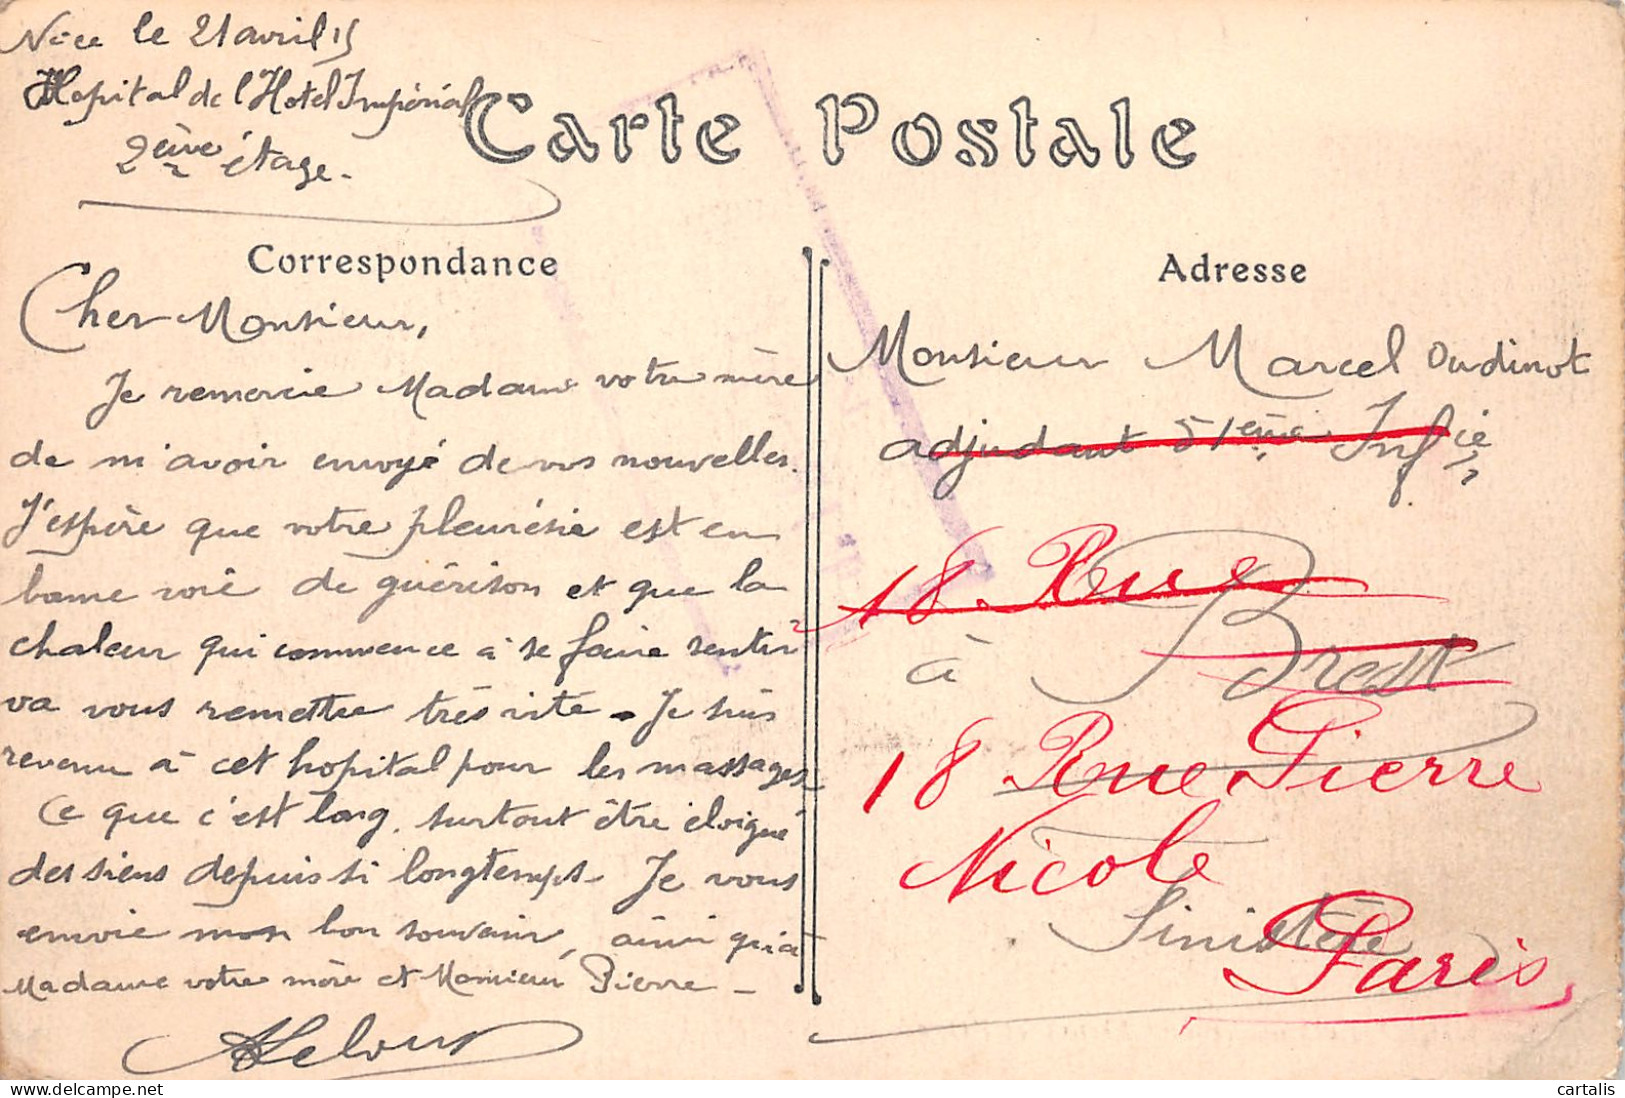 Nice le 21 avril 15
Hopital de l'Hotel Impérial
2ème étage.
Carte Postale
Correspondance
Cher Monsieur,
Je remercie Madame votre mère
de m'avoir envoyé de vos nouvelles.
J'espère que votre pleurésie est en
bonne voie de guérison et que la
chaleur qui commence à se faire sentir
va vous remettre très vite. Je suis
revenu à cet hopital pour les massages
Ce que c'est long, surtout être éloigné
des siens depuis si longtemps. Je vous
envoie mon bon souvenir, ainsi qu'à
Madame votre mère et Monsieur Pierre _
Adresse
Monsieur Marcel Oudinot
adjudant 51ème Infie
18 Rue
à Brest
18 Rue Pierre
Nicole
Finistère
Paris
cartalis